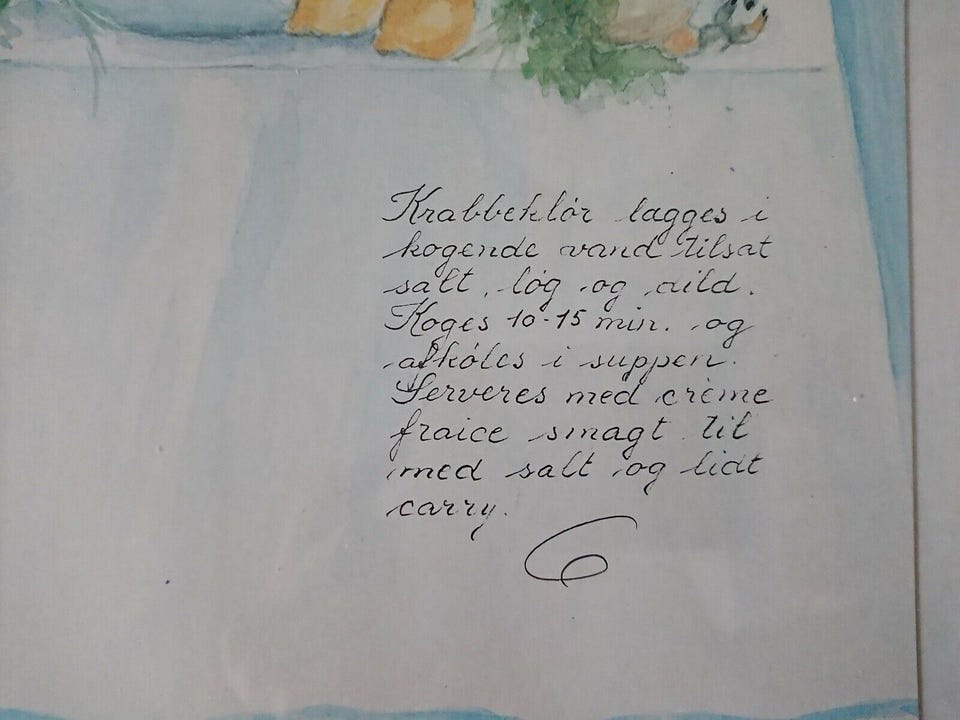 Krabbeklór lagges i
kogende vand tilsat
salt, løg og dild.
Koges 10-15 min. og
afkóles i suppen.
Serveres med crème
fraice smagt til
med salt og lidt
carry.